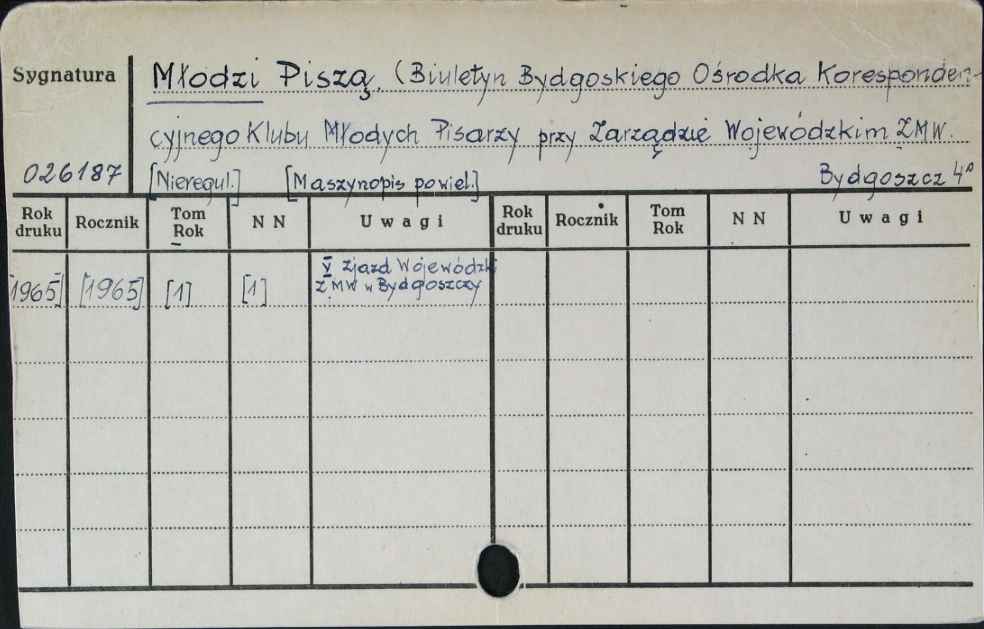 Sygnatura
Młodzi Piszą. (Biuletyn Bydgoskiego Ośrodka Koresponden-
cyjnego Klubu Młodych Pisarzy przy Zarządzie Wojewódzkim ZMW.
026187 [Nieregul.] [Maszynopis powiel.] Bydgoszcz 4°
Rok druku Rocznik Tom Rok NN Uwagi Rok druku Rocznik Tom Rok NN Uwagi
[1965] [1965] [1] [1] V Zjazd Wojewódzki
ZMW w Bydgoszczy